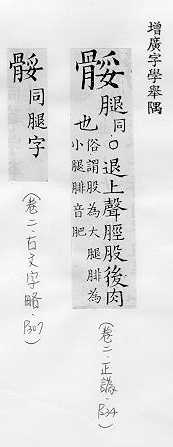 增廣字學舉隅
骽腿同○退上聲脛股後肉
也俗謂股為大腿腓為
小腿腓音肥
(卷二.正譌.P34)
骽同腿字
(卷二.古文字略.P307)